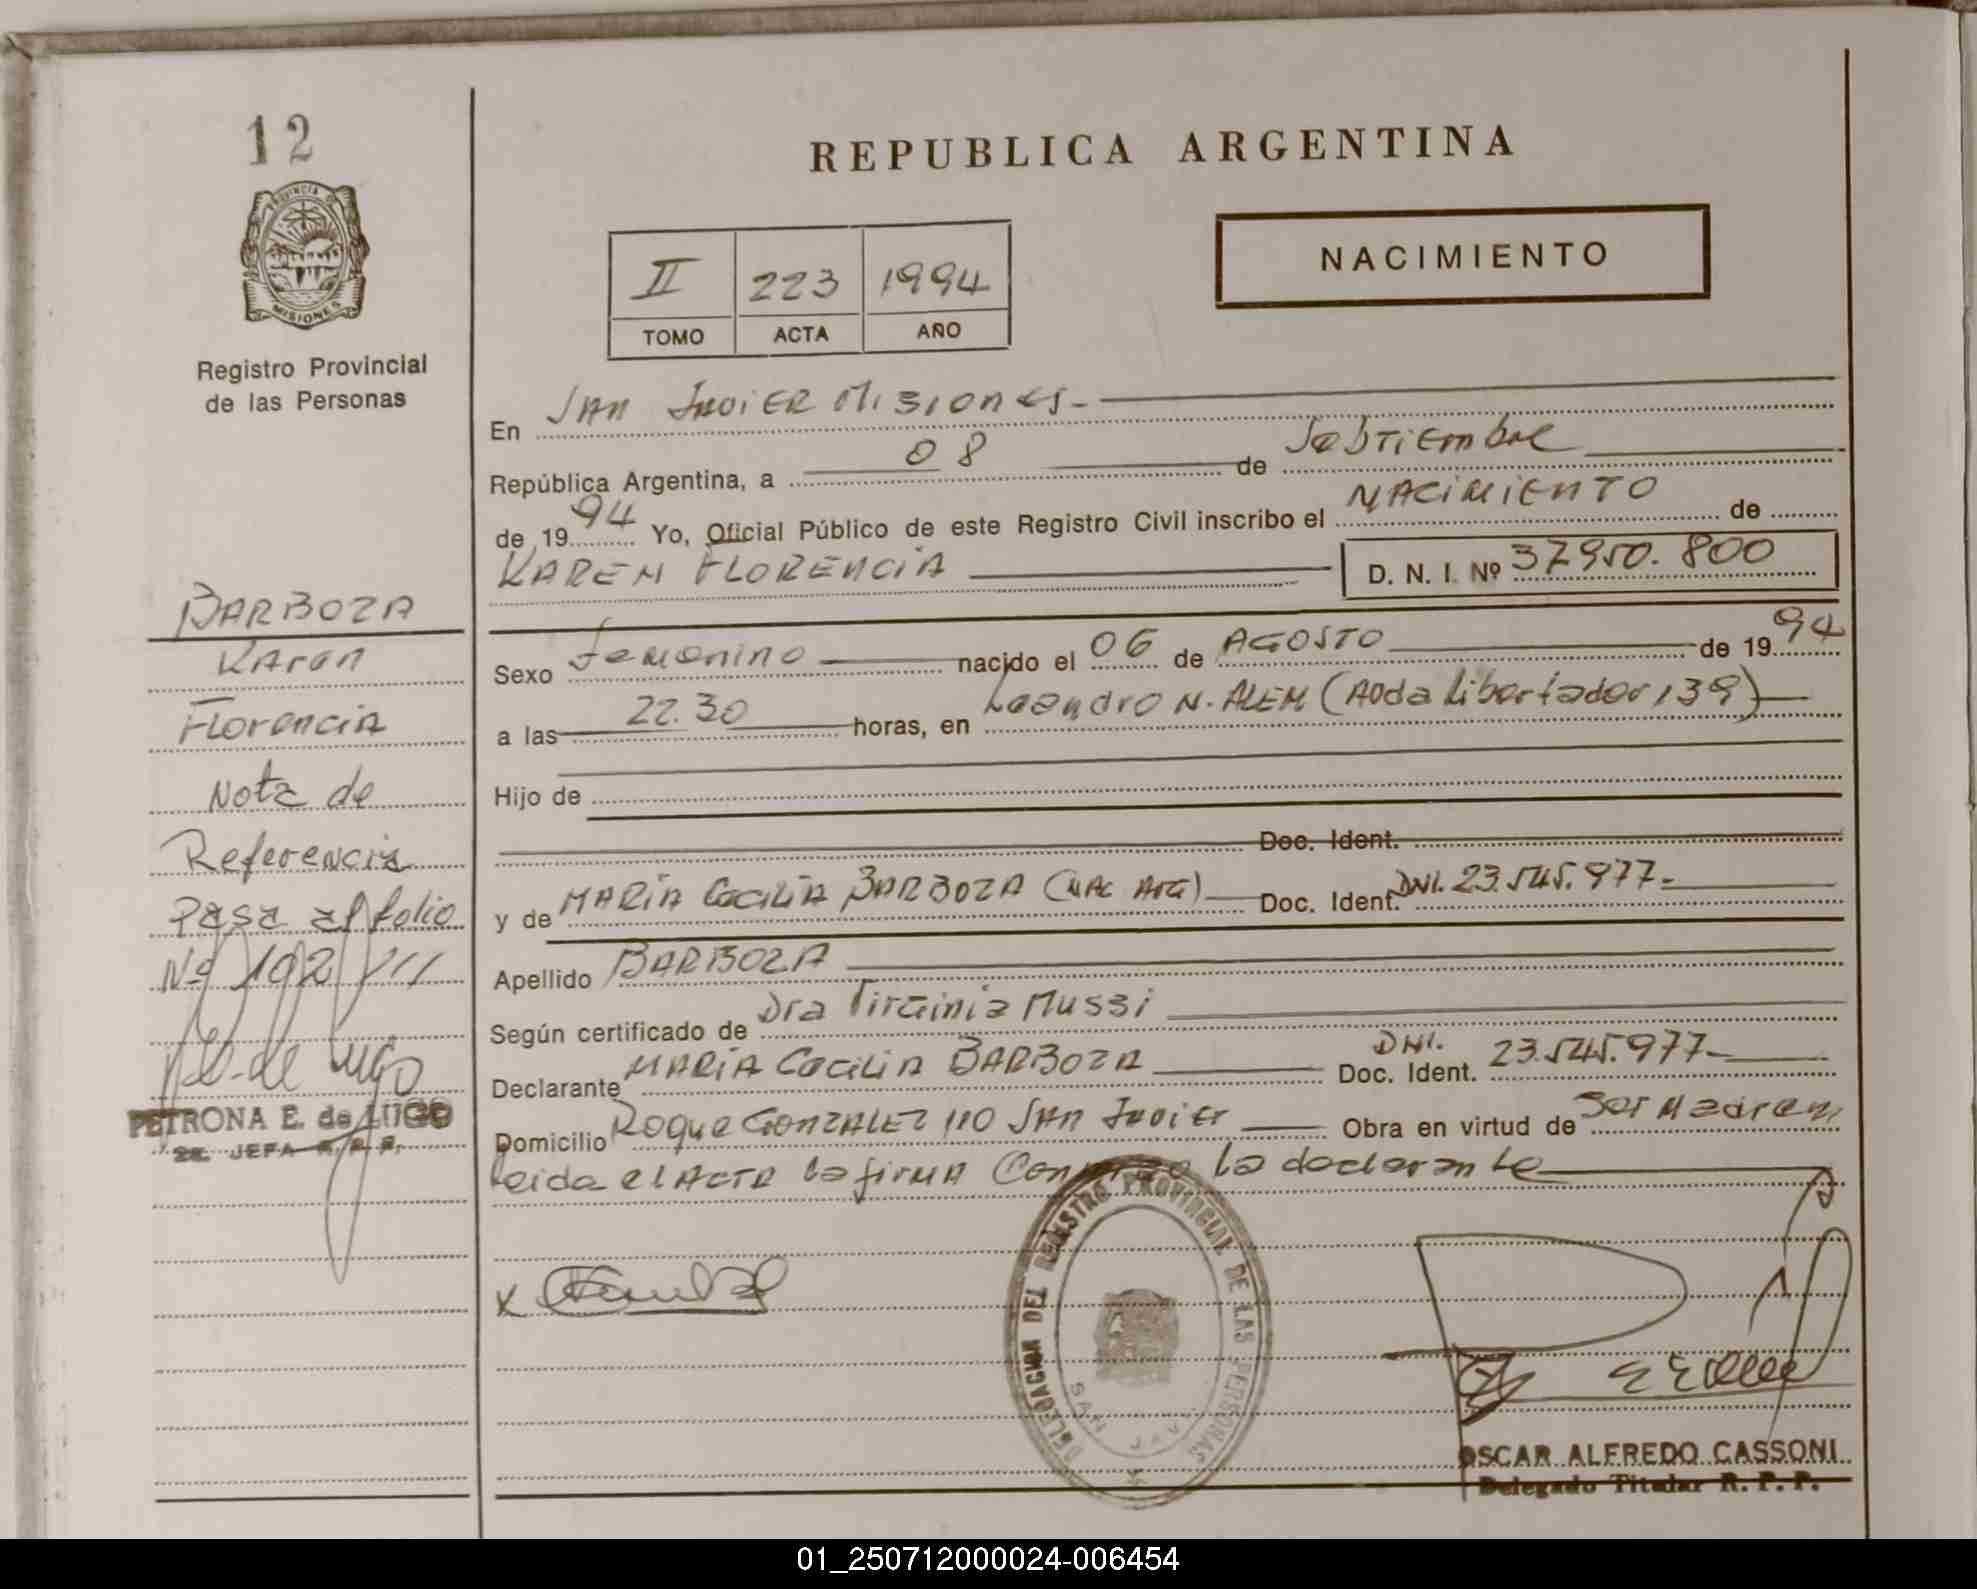 12
PROVINCIA DE
MISIONES
Registro Provincial
de las Personas
BARBOZA
Karen
Florencia
Nota de
Referencia
Pasa al folio
Nº 192
PETRONA E. de LUGO
JEFA R. P. P.
REPUBLICA ARGENTINA
II 223 1994
TOMO ACTA AÑO
NACIMIENTO
En SAN JAVIER MISIONES.-
República Argentina, a 08 de Sebtiembre
de 1994 Yo, Oficial Público de este Registro Civil inscribo el NACIMIENTO de
KAREN FLORENCIA D. N. I. Nº 37950.800
Sexo Femenino nacido el 06 de AGOSTO de 1994
a las 22.30 horas, en Leandro N. ALEM (AVda Libertador 139)
Hijo de
Doc. Ident.
y de MARIA Cecilia BARBOZA (NAC ARG) Doc. Ident. DNI. 23.545.977-
Apellido BARBOZA
Según certificado de Dra Virginia Mussi
Declarante MARIA Cecilia BARBOZA Doc. Ident. DNI. 23.545.977-
Domicilio Roque GONZALEZ 110 SAN Javier Obra en virtud de ser Madre
leida el ACTA la firma Conmigo la declarante
DELEGACION DEL REGISTRO PROVINCIAL DE LAS PERSONAS
SAN JAVI
OSCAR ALFREDO CASSONI
Delegado Titular R. P. P.
01_250712000024-006454